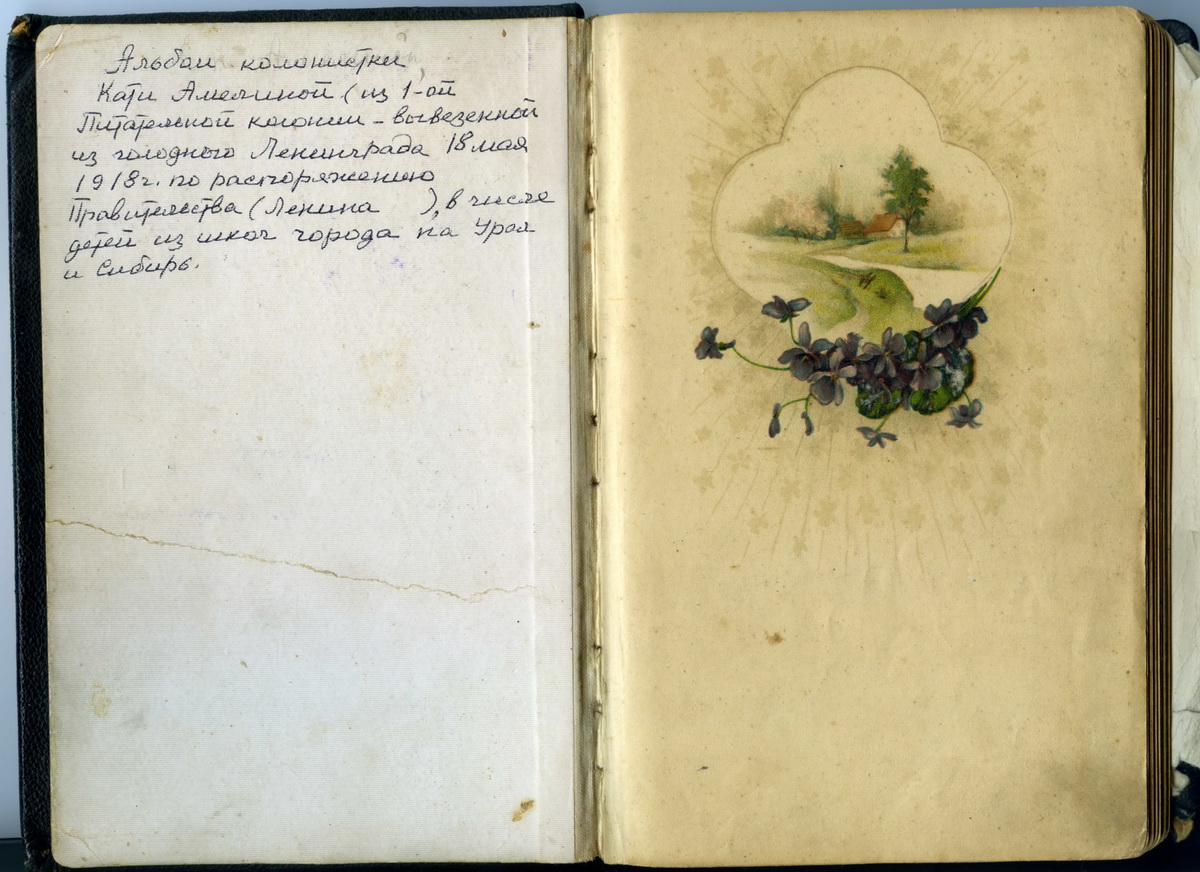 Альбом колонистки
Кати Амелиной (из 1-ой
Питательной колонии - вывезенной
из голодного Ленинграда 18 мая
1918 г. по распоряжению
Правительства (Ленина ), в числе
детей из школ города на Урал
и Сибирь.